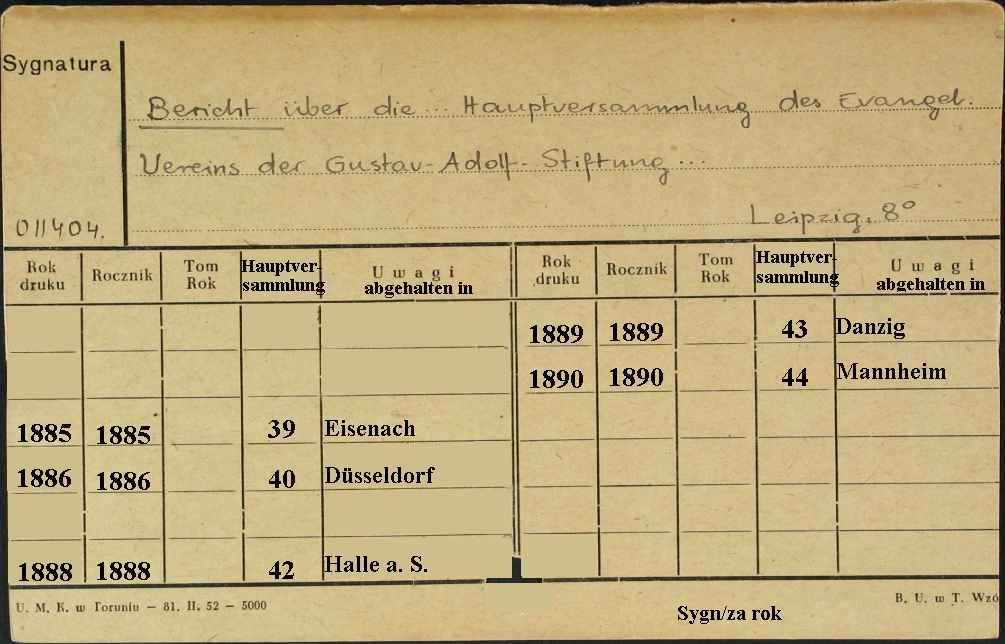 Sygnatura
Bericht über die ... Hauptversammlung des Evangel.
Vereins der Gustav-Adolf-Stiftung ...
011404.
Leipzig, 8°
Rok druku Rocznik Tom Rok Hauptver-sammlung Uwagi abgehalten in Rok druku Rocznik Tom Rok Hauptver-sammlung Uwagi abgehalten in
1885 1885 39 Eisenach
1886 1886 40 Düsseldorf
1888 1888 42 Halle a. S.
1889 1889 43 Danzig
1890 1890 44 Mannheim
U. M. K. w Toruniu — 81. II. 52 — 5000
Sygn/za rok
B. U. w T. Wzó